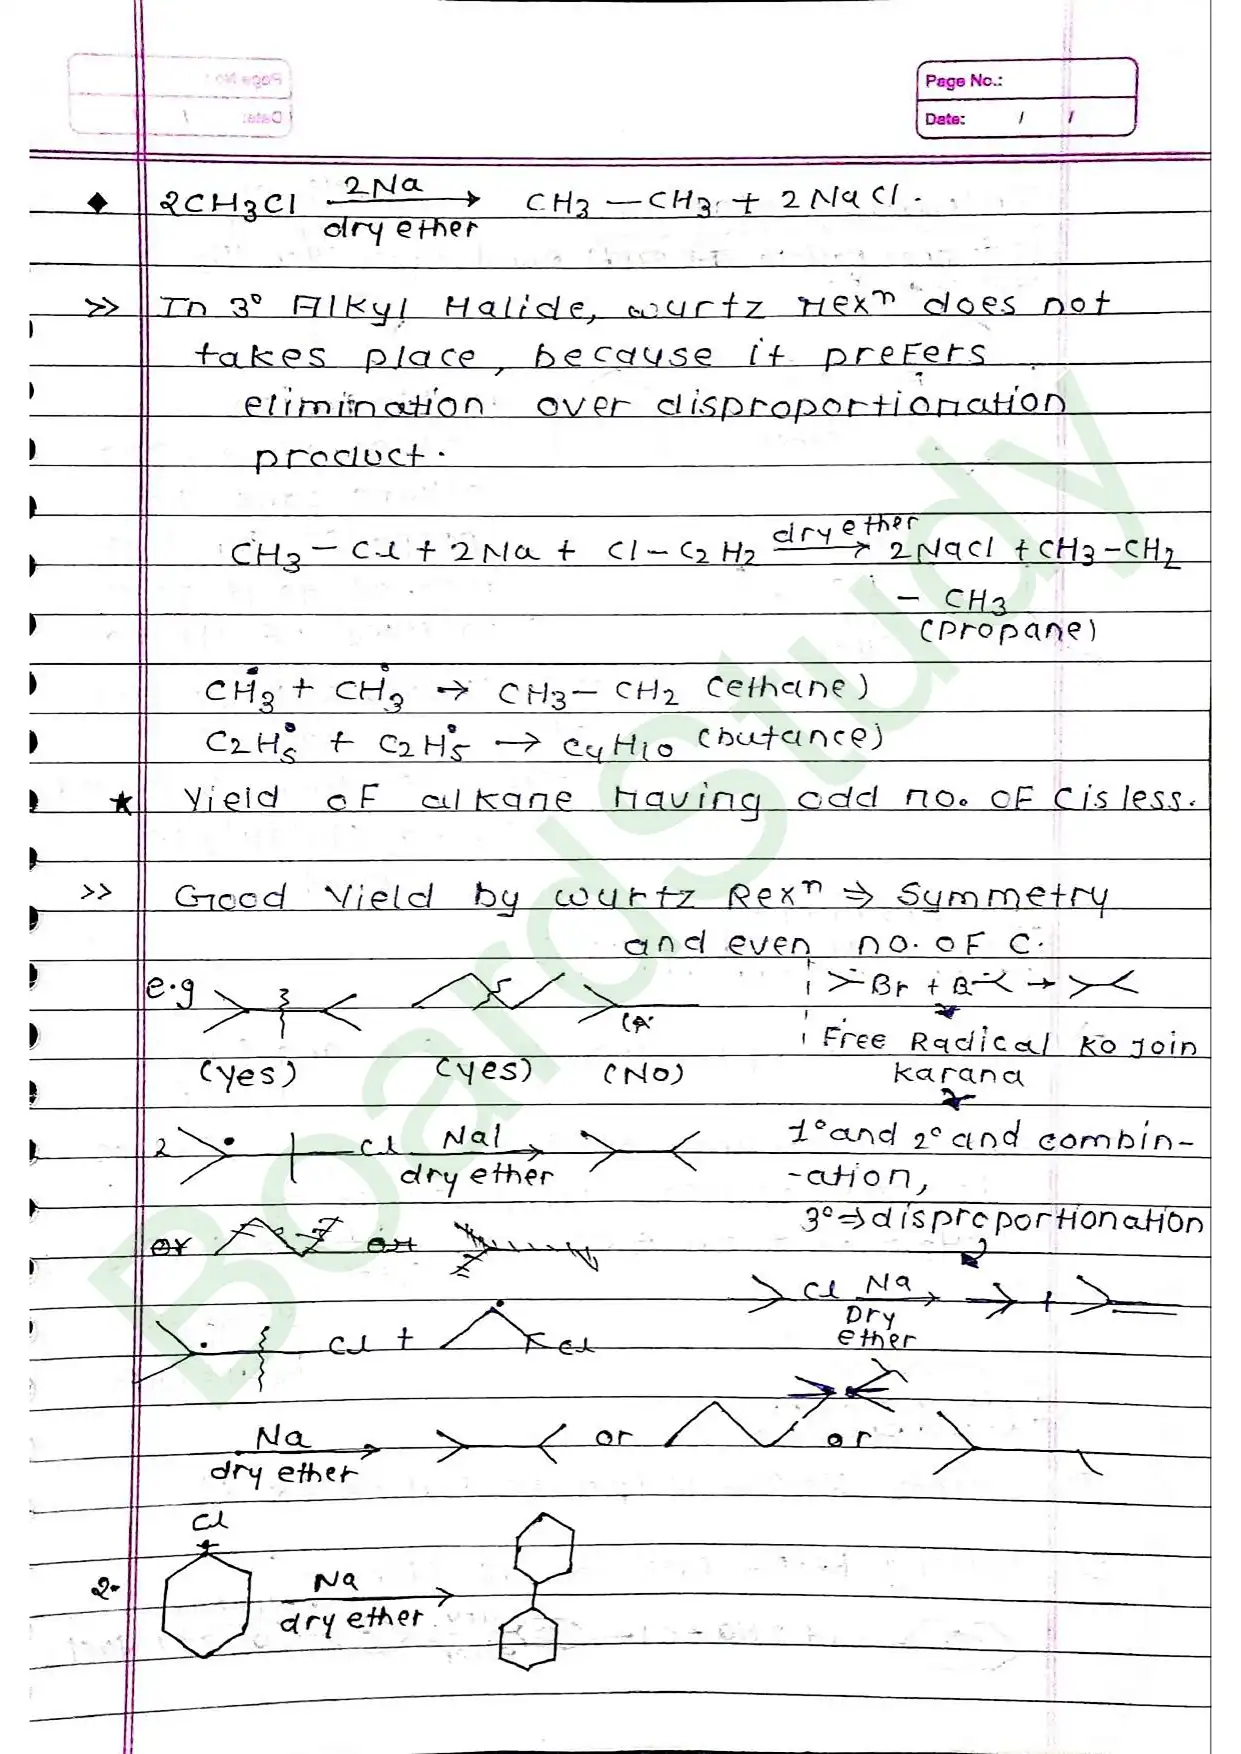 Page No.:
Date: / /
◆ 2CH3Cl 2Na dry ether → CH3 – CH3 + 2NaCl.
>> In 3° Alkyl Halide, wurtz rexⁿ does not
takes place, because it prefers
elimination over disproportionation
product.
CH3 – Cl + 2Na + Cl – C2H2 dry ether → 2NaCl + CH3 – CH2
– CH3
(propane)
CH3• + CH3• → CH3 – CH2 (ethane)
C2H5• + C2H5• → C4H10 (butance)
★ Yield of alkane Having odd no. of C is less.
>> Good Yield by wurtz Rexⁿ ⇒ Symmetry
and even no. of C.
e.g
Br + B →
Free Radical Ko Join
Karana
(yes) (yes) (No)
2 Cl Nal dry ether →
1° and 2° and combin-
-ation,
3° ⇒ disproportionation
or or
Cl Na Dry ether → +
Cl + Cl
Na dry ether → or or
Cl
2. Na dry ether →
BoardStudy